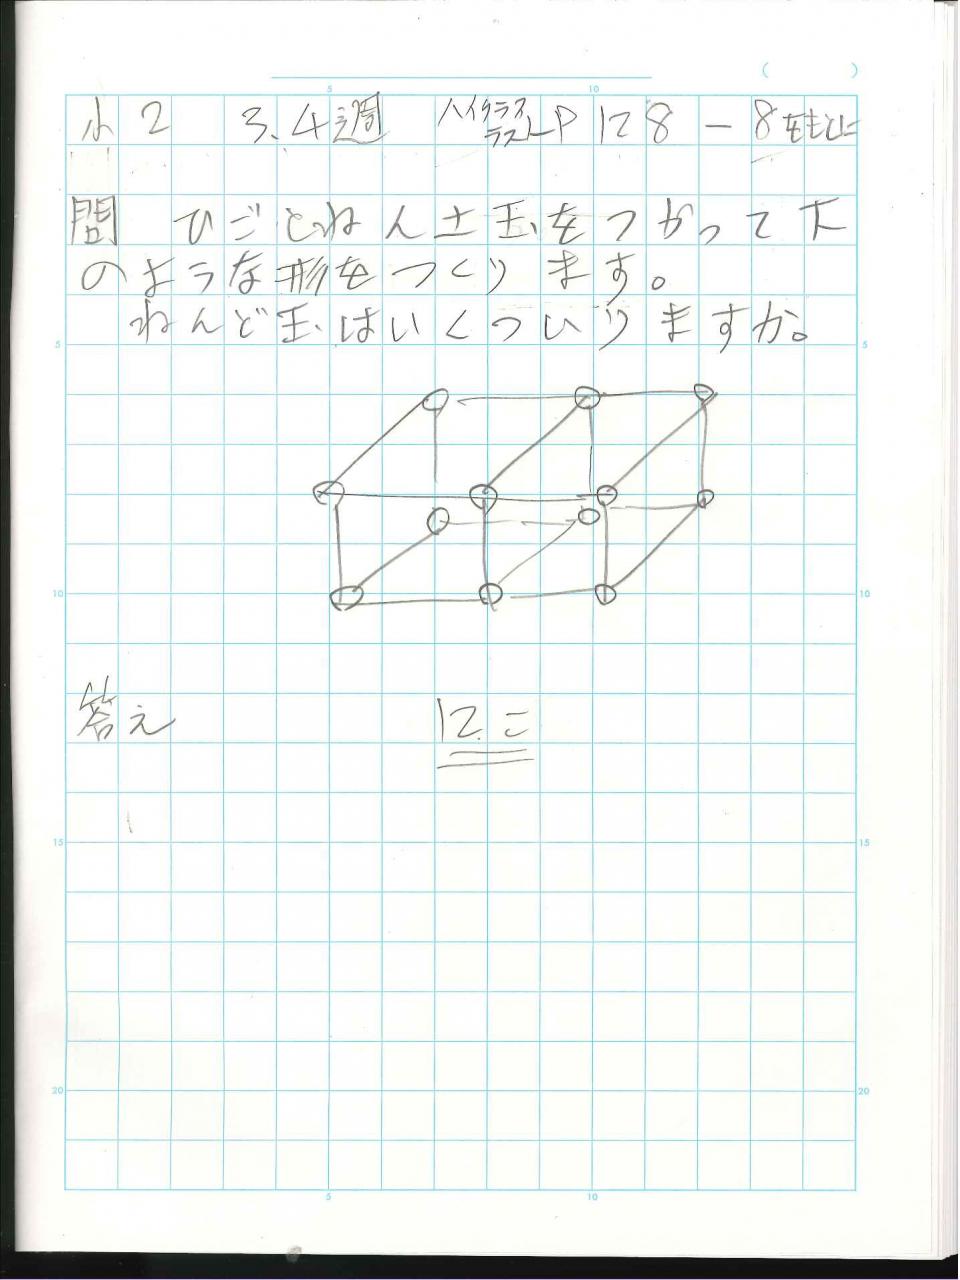 ( )
5 10
小2 3.4週 ハイクラステストP128-8をもとに
問 ひごとねん土玉をつかって下
のような形をつくります。
ねんど玉はいくついりますか。
5 5
10 10
答え 12こ
15 15
20 20
5 10